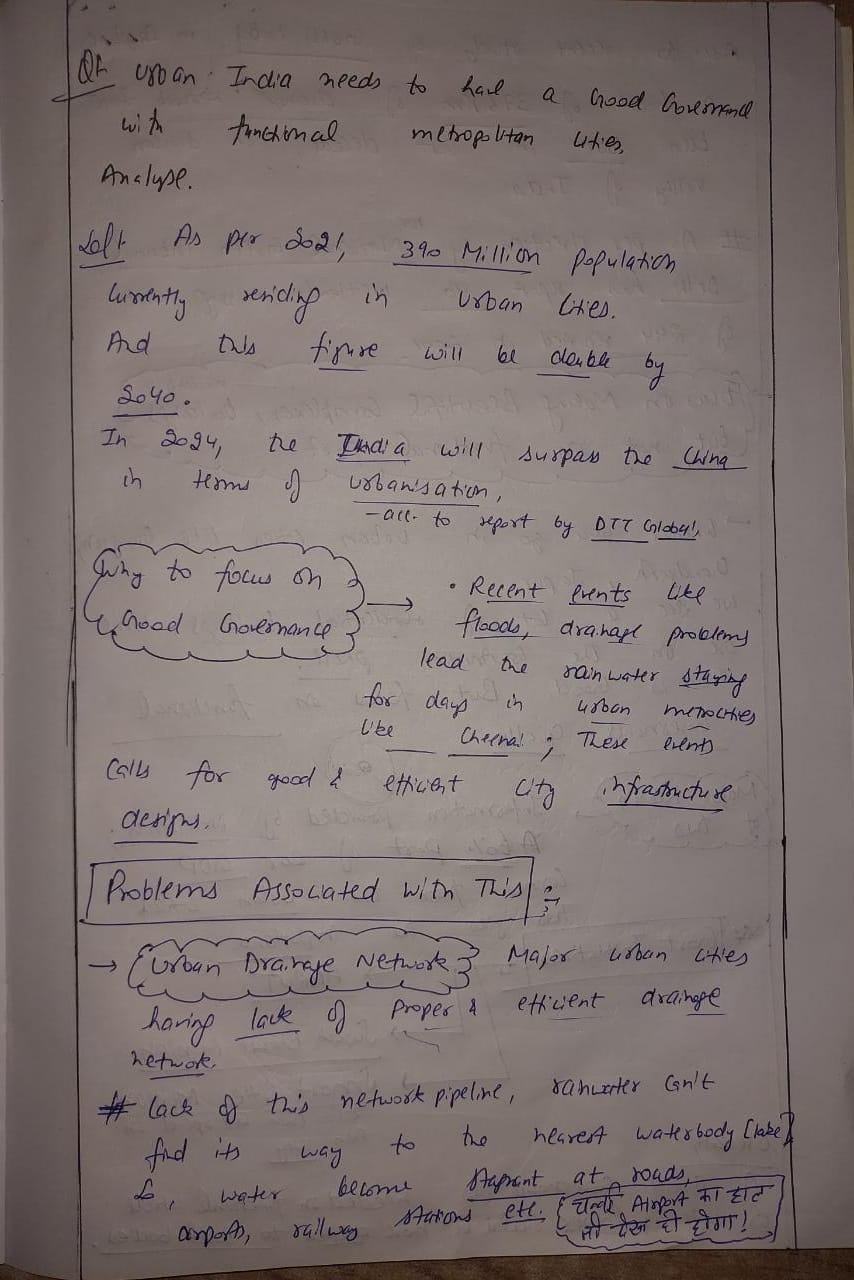 Q1. Urban India needs to have a Good Governance
with functional metropolitan cities,
Analyse.
Sol: As per 2021, 390 Million population
currently residing in Urban Cities.
And this figure will be double by
2040.
In 2024, the India will surpass the China
in terms of urbanisation,
- acc. to report by DTT Global.
Why to focus on
Good Governance → • Recent events like
floods, drainage problems
lead the rain water staying
for days in urban metrocities
like Cheenai ; These events
Calls for good & efficient City infrastructure
designs.
Problems Associated with This :-
→ Urban Drainage Network Major urban cities
having lack of Proper & efficient drainage
network.
# lack of this network pipeline, rainwater can't
find its way to the nearest waterbody [lake]
&, water become stagnant at roads,
airports, railway stations etc. { Airport का हाल
तो देख ही होगा!